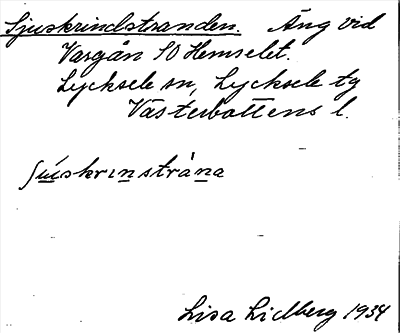 Sjuskrindstranden. Äng vid
Vargån SO Hemselet.
Lycksele sn, Lycksele tg
Västerbottens l.
ʃúskrınstràna
Lisa Lidberg 1934